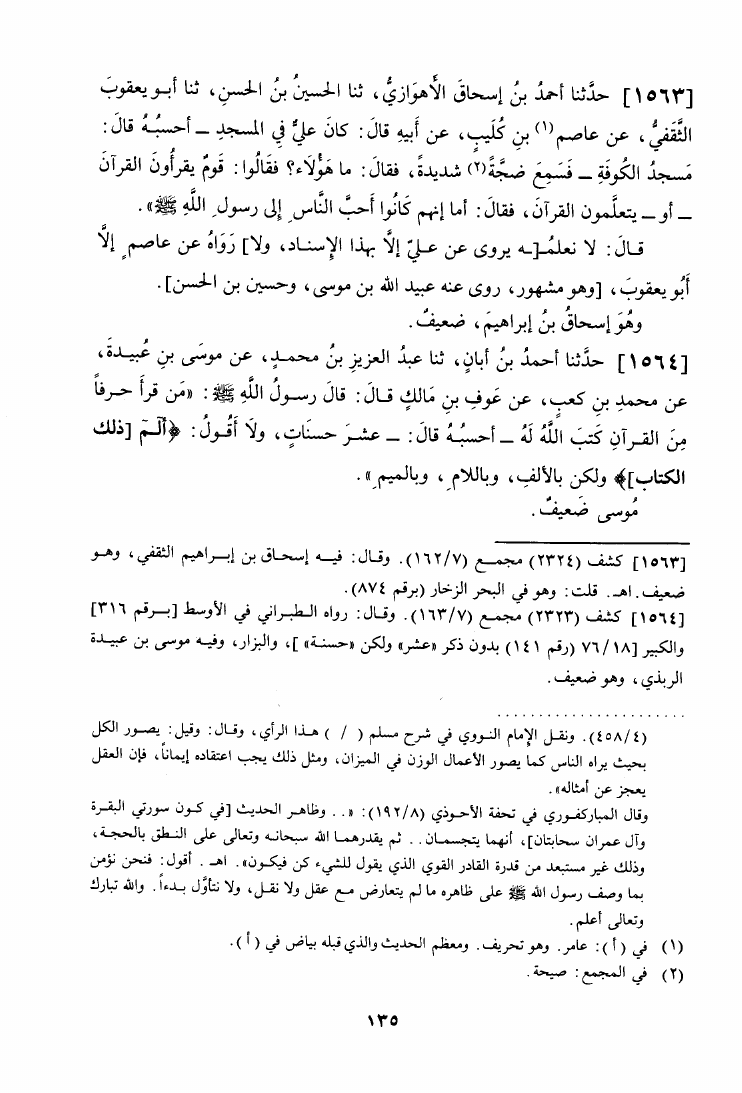 [١٥٦٣] حدَّثنا أحمدُ بنُ إسحاقَ الأهوَازيُّ، ثنا الحسينُ بنُ الحسنِ، ثنا أبو يعقوبَ
الثَّقفيُّ، عن عاصم(١) بنِ كُلَيبٍ، عن أبيهِ قالَ: كانَ عليٌّ في المسجدِ ـ أحسبُهُ قالَ:
مَسجدُ الكوفَةِ ـ فَسَمِعَ ضجَّةً(٢) شديدةً، فقالَ: ما هَؤُلَاءِ؟ فقالُوا: قَومٌ يقرأُونَ القرآنَ
ـ أو ـ يتعلَّمون القرآنَ، فقالَ: أما إنهم كَانُوا أحبَّ النَّاسِ إلى رسولِ اللَّهِ ﷺ».
قالَ: لا نعلمُـ[ـه يروى عن عليّ إلَّا بهذا الإسنادِ، ولا] رَوَاهُ عن عاصمٍ إلَّا
أبُو يعقوبَ، [وهو مشهور، روى عنه عبيد الله بن موسى، وحسين بن الحسن].
وهُوَ إسحاقُ بنُ إبراهيمَ، ضعيفٌ.
[١٥٦٤] حدَّثنا أحمدُ بنُ أبانٍ، ثنا عبدُ العزيزِ بنُ محمدٍ، عن موسَى بنِ عُبيدةَ،
عن محمدِ بنِ كعبٍ، عن عَوفِ بنِ مَالكٍ قالَ: قالَ رسولُ اللَّهِ ﷺ: «مَن قرأَ حرفاً
مِنَ القرآنِ كتبَ اللَّهُ لَهُ ـ أحسبُهُ قالَ: ـ عشرَ حسنَاتٍ، ولَا أَقُولُ: ﴿أَلَمَ [ذلك
الكتاب]﴾ ولكن بالألفِ، وباللامِ، وبالميمِ».
مُوسى ضَعيفٌ.
[١٥٦٣] كشف (٢٣٢٤) مجمع (١٦٢/٧). وقال: فيه إسحاق بن إبراهيم الثقفي، وهو
ضعيف. اهـ. قلت: وهو في البحر الزخار (برقم ٨٧٤).
[١٥٦٤] كشف (٢٣٢٣) مجمع (١٦٣/٧). وقال: رواه الطبراني في الأوسط [برقم ٣١٦]
والكبير [٧٦/١٨ (رقم ١٤١) بدون ذكر «عشر» ولكن «حسنة» ]، والبزار، وفيه موسى بن عبيدة
الربذي، وهو ضعيف.
(٤٥٨/٤). ونقل الإمام النووي في شرح مسلم ( / ) هذا الرأي، وقال: وقيل: يصور الكل
بحيث يراه الناس كما يصور الأعمال الوزن في الميزان، ومثل ذلك يجب اعتقاده إيماناً، فإن العقل
يعجز عن أمثاله».
وقال المباركفوري في تحفة الأحوذي (١٩٢/٨): «.. وظاهر الحديث [في كون سورتي البقرة
وآل عمران سحابتان]، أنهما يتجسمان.. ثم يقدرهما الله سبحانه وتعالى على النطق بالحجة،
وذلك غير مستبعد من قدرة القادر القوي الذي يقول للشيء كن فيكون». اهـ. أقول: فنحن نؤمن
بما وصف رسول الله ﷺ على ظاهره ما لم يتعارض مع عقل ولا نقل، ولا نتأوَّل بدءاً. والله تبارك
وتعالى أعلم.
(١) في (أ): عامر. وهو تحريف. ومعظم الحديث والذي قبله بياض في (أ).
(٢) في المجمع: صيحة.
١٣٥